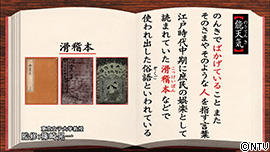 【能天気】
のんきでばかげていること また
そのさまやそのような人を指す言葉
江戸時代中期に庶民の娯楽として
読まれていた滑稽本などで
使われ出した俗語といわれている
滑稽本
©NTV